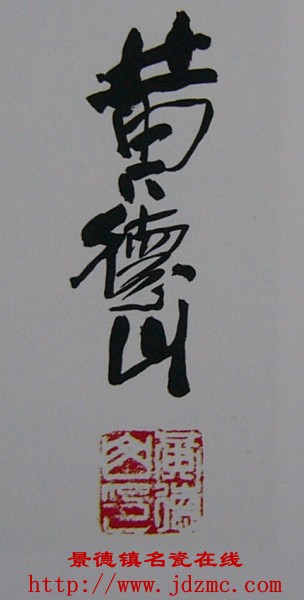 黄德山
黄德
山印
景德镇名瓷在线
http://www.jdzmc.com